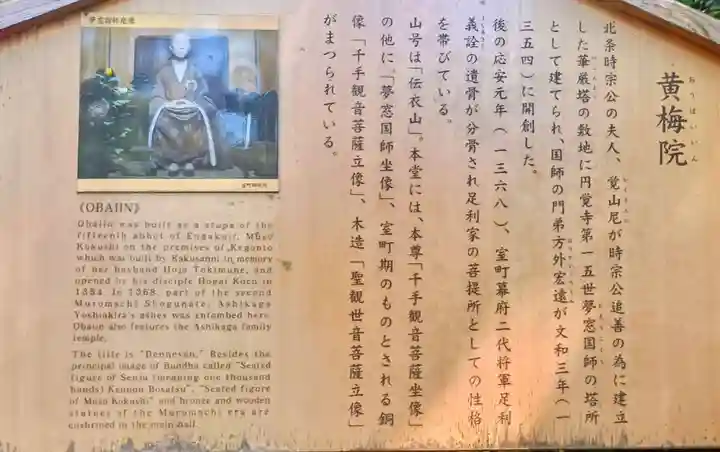 黄梅院
おうばいいん
北条時宗公の夫人、覚山尼が時宗公追善の為に建立
した華厳塔の敷地に円覚寺第一五世夢窓国師の塔所
として建てられ、国師の門弟方外宏遠が文和三年(一
三五四)に開創した。
後の応安元年(一三六八)、室町幕府二代将軍足利
義詮の遺骨が分骨され足利家の菩提所としての性格
を帯びている。
山号は「伝衣山」。本堂には、本尊「千手観音菩薩坐像」
の他に「夢窓国師坐像」、室町期のものとされる銅
像「千手観音菩薩立像」、木造「聖観世音菩薩立像」
がまつられている。
夢窓国師坐像
《OBAIIN》
Obaiin was built as a stupa of the
fifteenth abbot of Engakuji, Muso
Kokushi on the premises of Kegonto
which was built by Kakusanni in memory
of her husband Hojo Tokimune, and
opened by his disciple Hogai Koen in
1354. In 1368, part of the second
Muromachi Shogunate, Ashikaga
Yoshiakira's ashes was entombed here.
Obaiin also features the Ashikaga family
temple.
The title is "Dennesan." Besides the
principal image of Buddha called "Seated
figure of Senju (meaning one thousand
hands) Kannon Bosatsu", "Seated figure
of Muso Kokushi" and bronze and wooden
statues of the Muromachi era are
enshrined in the main hall.